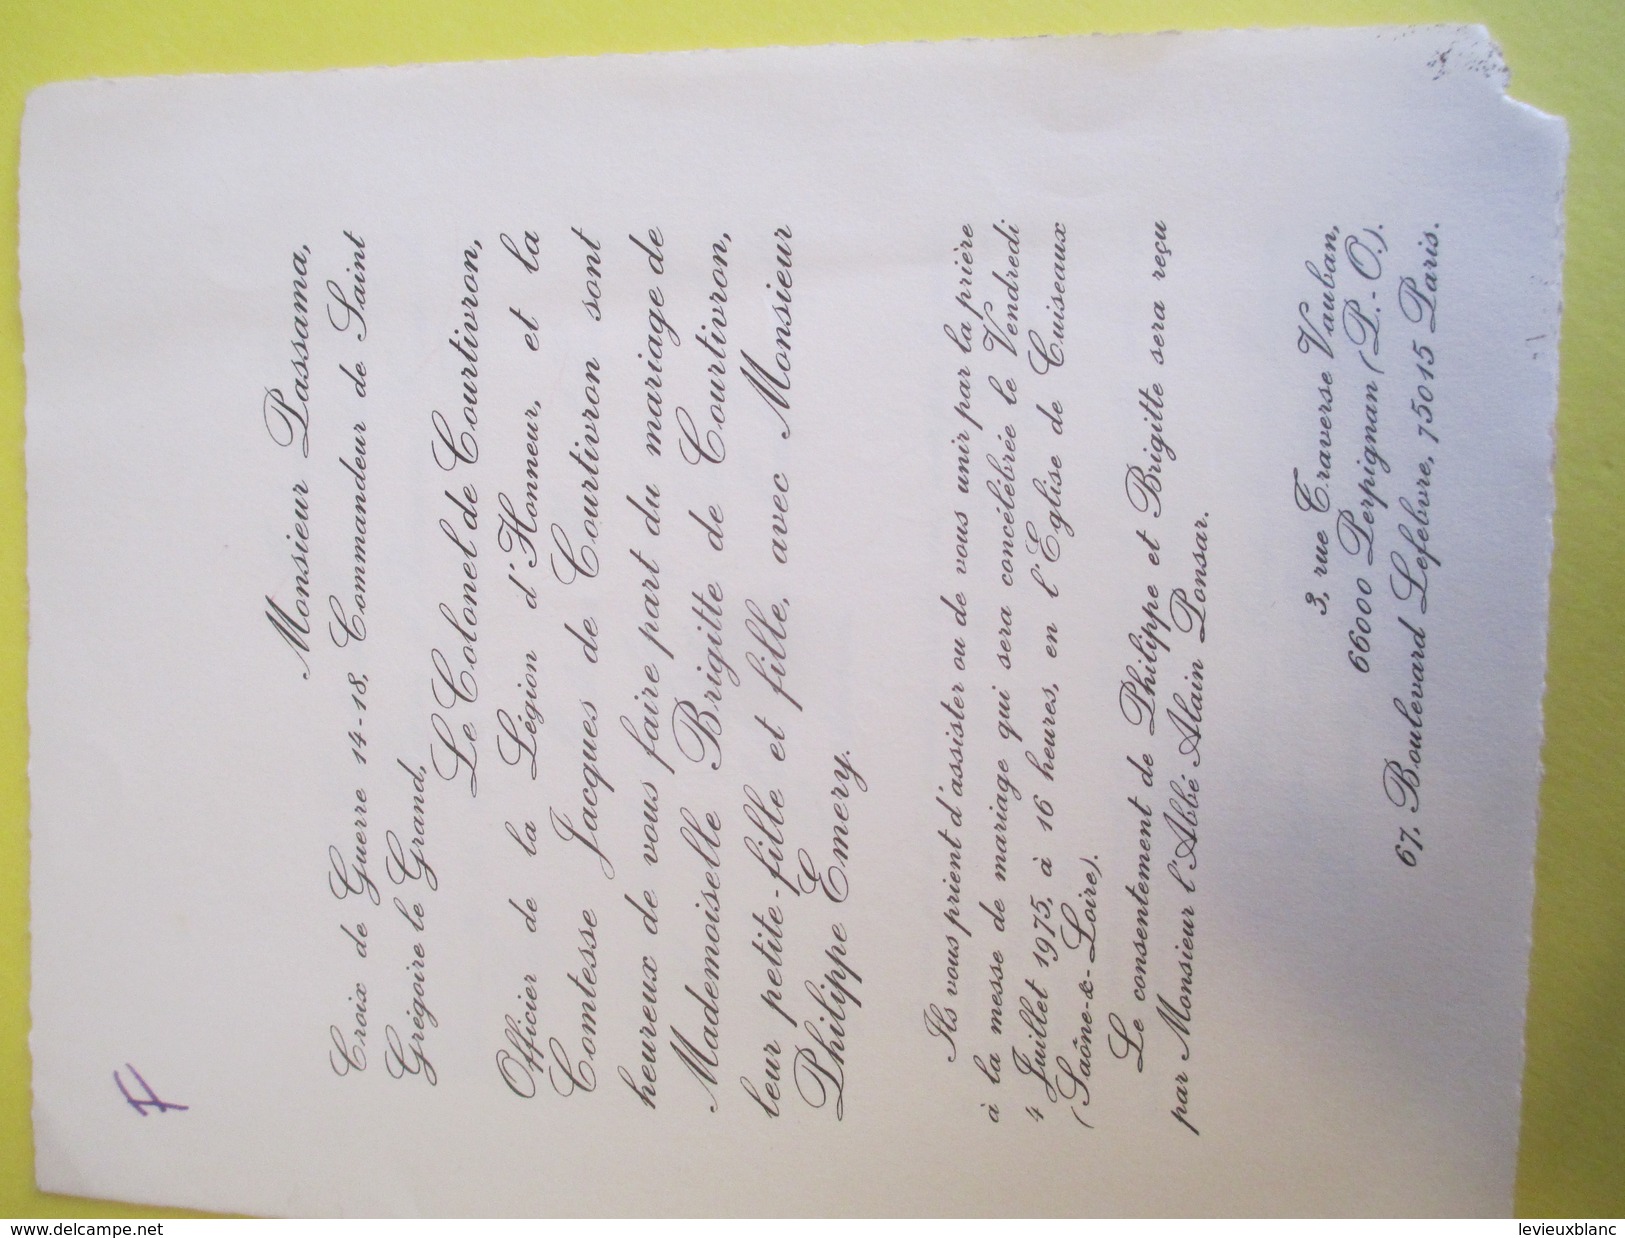 F
Monsieur Passama,
Croix de Guerre 14-18, Commandeur de Saint
Grégoire le Grand,
Le Colonel de Courtivron,
Officier de la Légion d'Honneur, et la
Comtesse Jacques de Courtivron sont
heureux de vous faire part du mariage de
Mademoiselle Brigitte de Courtivron,
leur petite-fille et fille, avec Monsieur
Philippe Emery.
Ils vous prient d'assister ou de vous unir par la prière
à la messe de mariage qui sera concélébrée le Vendredi
4 Juillet 1975, à 16 heures, en l'Eglise de Cuiseaux
(Saône-&-Loire).
Le consentement de Philippe et Brigitte sera reçu
par Monsieur l'Abbé Alain Ponsar.
3, rue Traverse Vauban,
66000 Perpignan (P.-O.).
67, Boulevard Lefebvre, 75015 Paris.
www.delcampe.net
levieuxblanc